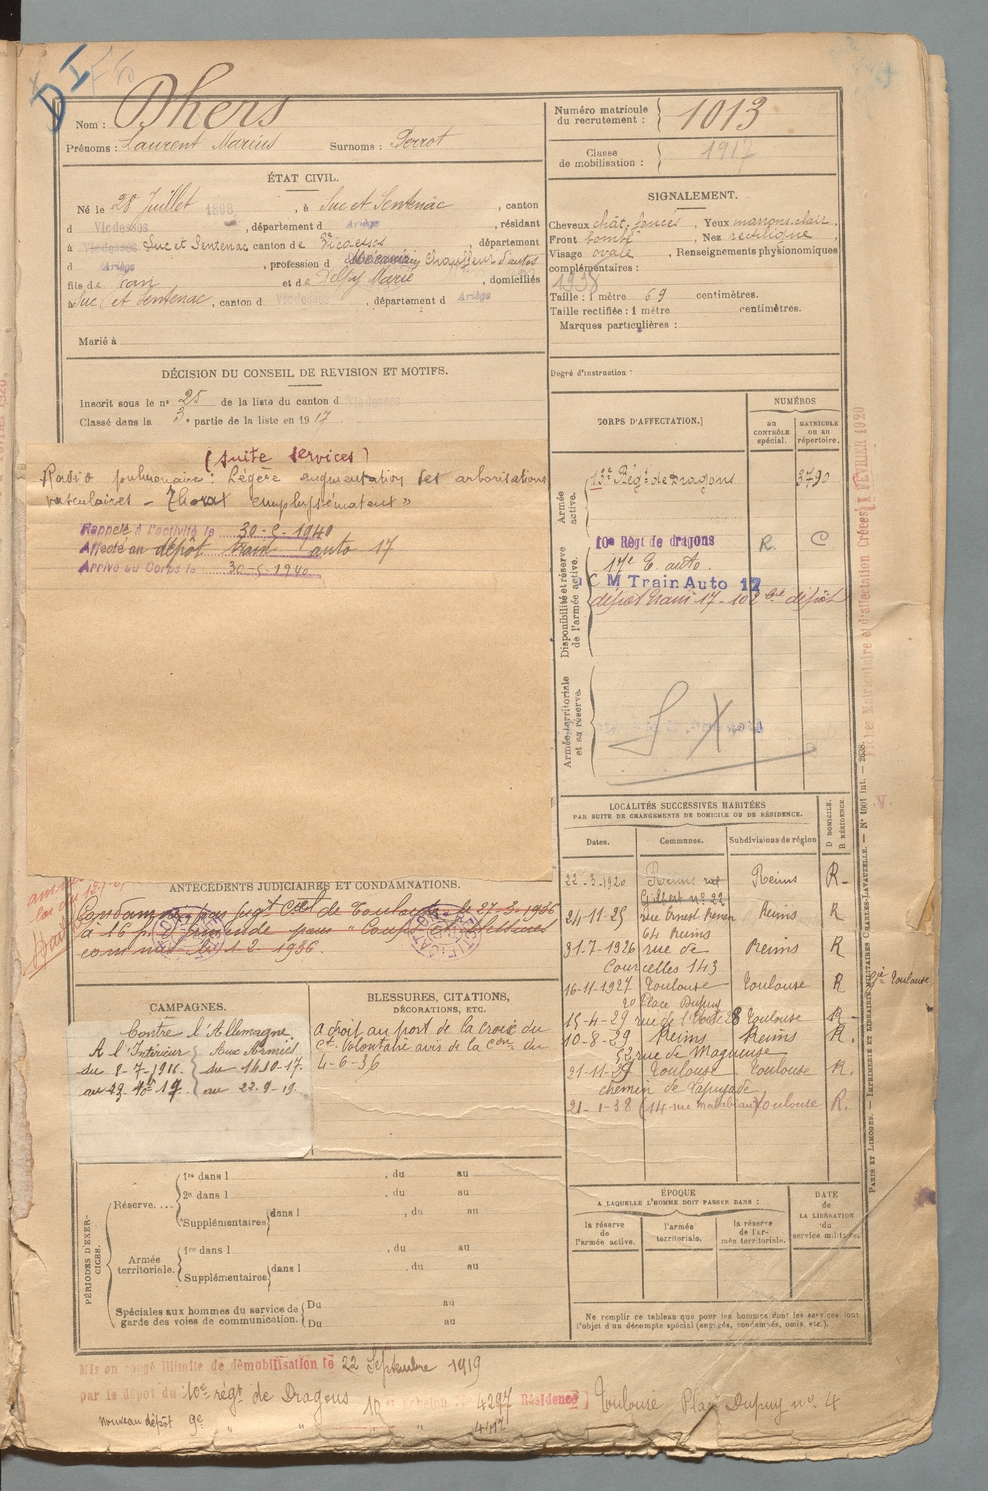 DI
Nom : Dhers
Prénoms : Laurent Marius Surnoms : Perrot
Numéro matricule du recrutement : 1013
Classe de mobilisation : 1917
ÉTAT CIVIL.
Né le 28 Juillet 1898, à Suc et Sentenac, canton
d Vicdessos, département d Ariège, résidant
à Vicdessos Suc et Sentenac canton de Vicdessos, département
d Ariège, profession d Mécanicien Chauffeur d'autos
fils de Jean et de Delpy Marie, domiciliés
à Suc et Sentenac, canton d Vicdessos, département d Ariège
Marié à
SIGNALEMENT.
Cheveux chât. foncés, Yeux marrons clair,
Front bombé, Nez rectiligne
Visage ovale, Renseignements physionomiques
complémentaires :
1938
Taille : 1 mètre 69 centimètres.
Taille rectifiée : 1 mètre centimètres.
Marques particulières :
Degré d'instruction :
DÉCISION DU CONSEIL DE REVISION ET MOTIFS.
Inscrit sous le n° 25 de la liste du canton d Vicdessos
Classé dans la 3e partie de la liste en 1917.
(suite services)
Radio pulmonaire : Légère augmentation des arborisations
vasculaires - Thorax emphysémateux »
Rappelé à l'activité le 30-5-1940
Affecté au dépôt train auto 17
Arrivé au Corps le 30-5-1940
CORPS D'AFFECTATION.
NUMÉROS
au CONTRÔLE spécial.
MATRICULE ou au répertoire.
Armée active.
13e Régt de Dragons 3790
Disponibilité et réserve de l'armée active.
10e Régt de dragons R. C
17e E. auto.
C M Train Auto 17
dépôt train 17 - 102 Cie dépôt
Armée territoriale et sa réserve.
S X
LOCALITÉS SUCCESSIVES HABITÉES
PAR SUITE DE CHANGEMENTS DE DOMICILE OU DE RÉSIDENCE.
Dates. Communes. Subdivisions de région
D DOMICILE.
R RÉSIDENCE.
22-3-1920 Reims rue Reims R
Gilbert n° 22
24-11-25 rue Ernest Renan Reims R
64 Reims
31-7-1926 rue de Reims R
Courcelles 143
16-11-1927 Toulouse Toulouse R
20 Place Dupuy
15-4-29 Toulouse R
10-8-29 Reims Reims R.
52 rue de Magneuse
21-11-29 Toulouse Toulouse R.
chemin de Lapujade
21-1-38 Toulouse R.
ANTÉCÉDENTS JUDICIAIRES ET CONDAMNATIONS.
Condamné par Jugt Ctel de Toulouse le 27-3-1936
à 16 f. d'amende pour "Coups et blessures"
commis le 1-2-1936
CAMPAGNES.
Contre l'Allemagne
A l'Intérieur Aux Armées
du 8-7-1916. du 14.10-17.
au 22-9-19.
BLESSURES, CITATIONS,
DÉCORATIONS, ETC.
A droit au port de la croix du
Ct. Volontaire avis de la Con. du
4-6-36
PÉRIODES D'EXERCICES.
Réserve....
1re dans l , du au
2e dans l , du au
Supplémentaires dans l , du au
Armée territoriale.
1re dans l , du au
Supplémentaires dans l , du au
Spéciales aux hommes du service de garde des voies de communication.
Du au
Du au
ÉPOQUE
A LAQUELLE L'HOMME DOIT PASSER DANS :
la réserve de l'armée active.
l'armée territoriale.
la réserve de l'armée territoriale.
DATE de LA LIBÉRATION du service militaire.
Ne remplir ce tableau que pour les hommes dont les services font
l'objet d'un décompte spécial (engagés, condamnés, omis, etc.).
Mis en congé illimité de démobilisation le 22 Septembre 1919
par le dépôt du 10e régt de Dragons 10e échelon n° 4297 Résidence Toulouse Place Dupuy n° 4
Nouveau dépôt 9e " " " " 4412
Fiche Matriculaire et d'affectation Créées 1 FÉVRIER 1920
PARIS ET LIMOGES. — IMPRIMERIE ET LIBRAIRIE MILITAIRES CHARLES-LAVAUZELLE. — N° 1001 int. — 2638.